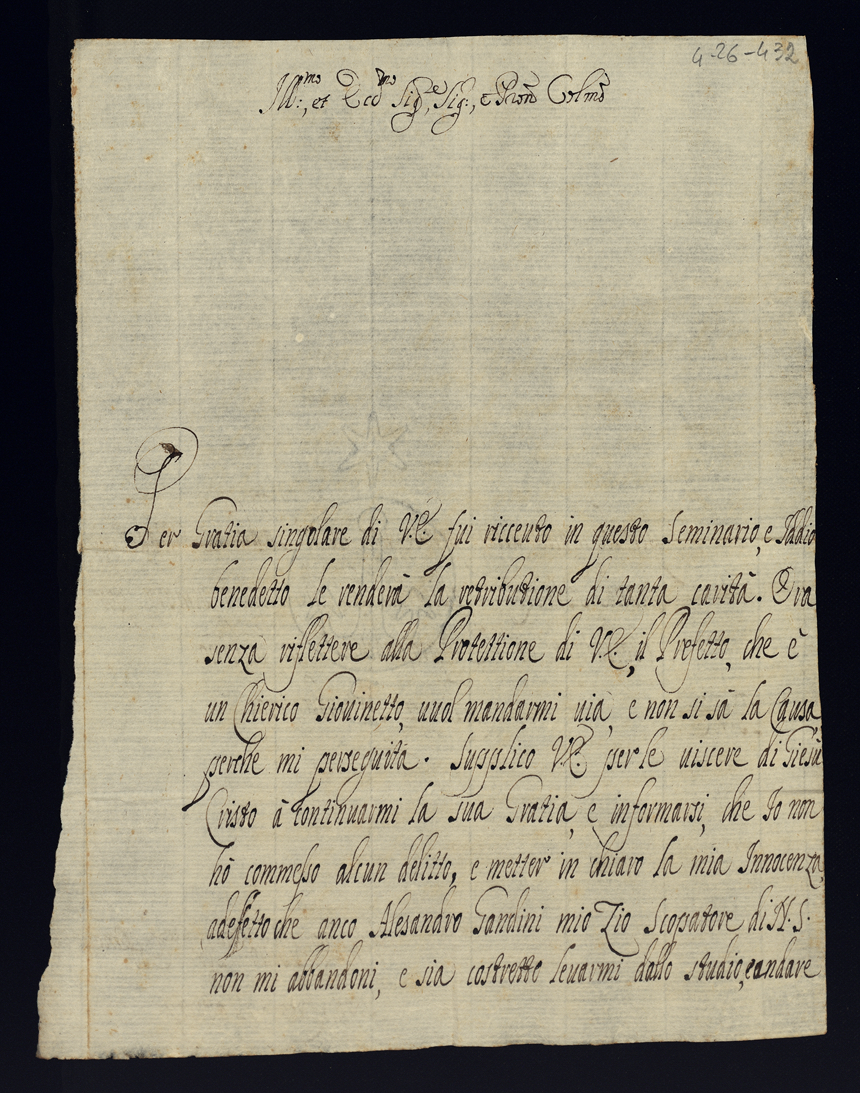 426-432
Ill:mo, et Ecc:mo Sig.re, Sig:, e Pron Colmo
Per Gratia singolare di V.E. fui riceuto in questo Seminario, e Iddio
benedetto le renderà la retributione di tanta carità. Ora
senza riflettere alla Protettione di V.E., il Prefetto, che è
un Chierico Giovinetto, uuol mandarmi uia, e non si sà la Causa,
perche mi perseguita. Supplico V.E. per le uiscere di Giesù
Cristo à continuarmi la sua Gratia, e informarsi, che Io non
hò commesso alcun delitto, e metter in chiaro la mia Innocenza,
adeffetto che anco Alesandro Gandini mio Zio Scopatore di N.S.
non mi abbandoni, e sia costretto leuarmi dallo studio, e andare